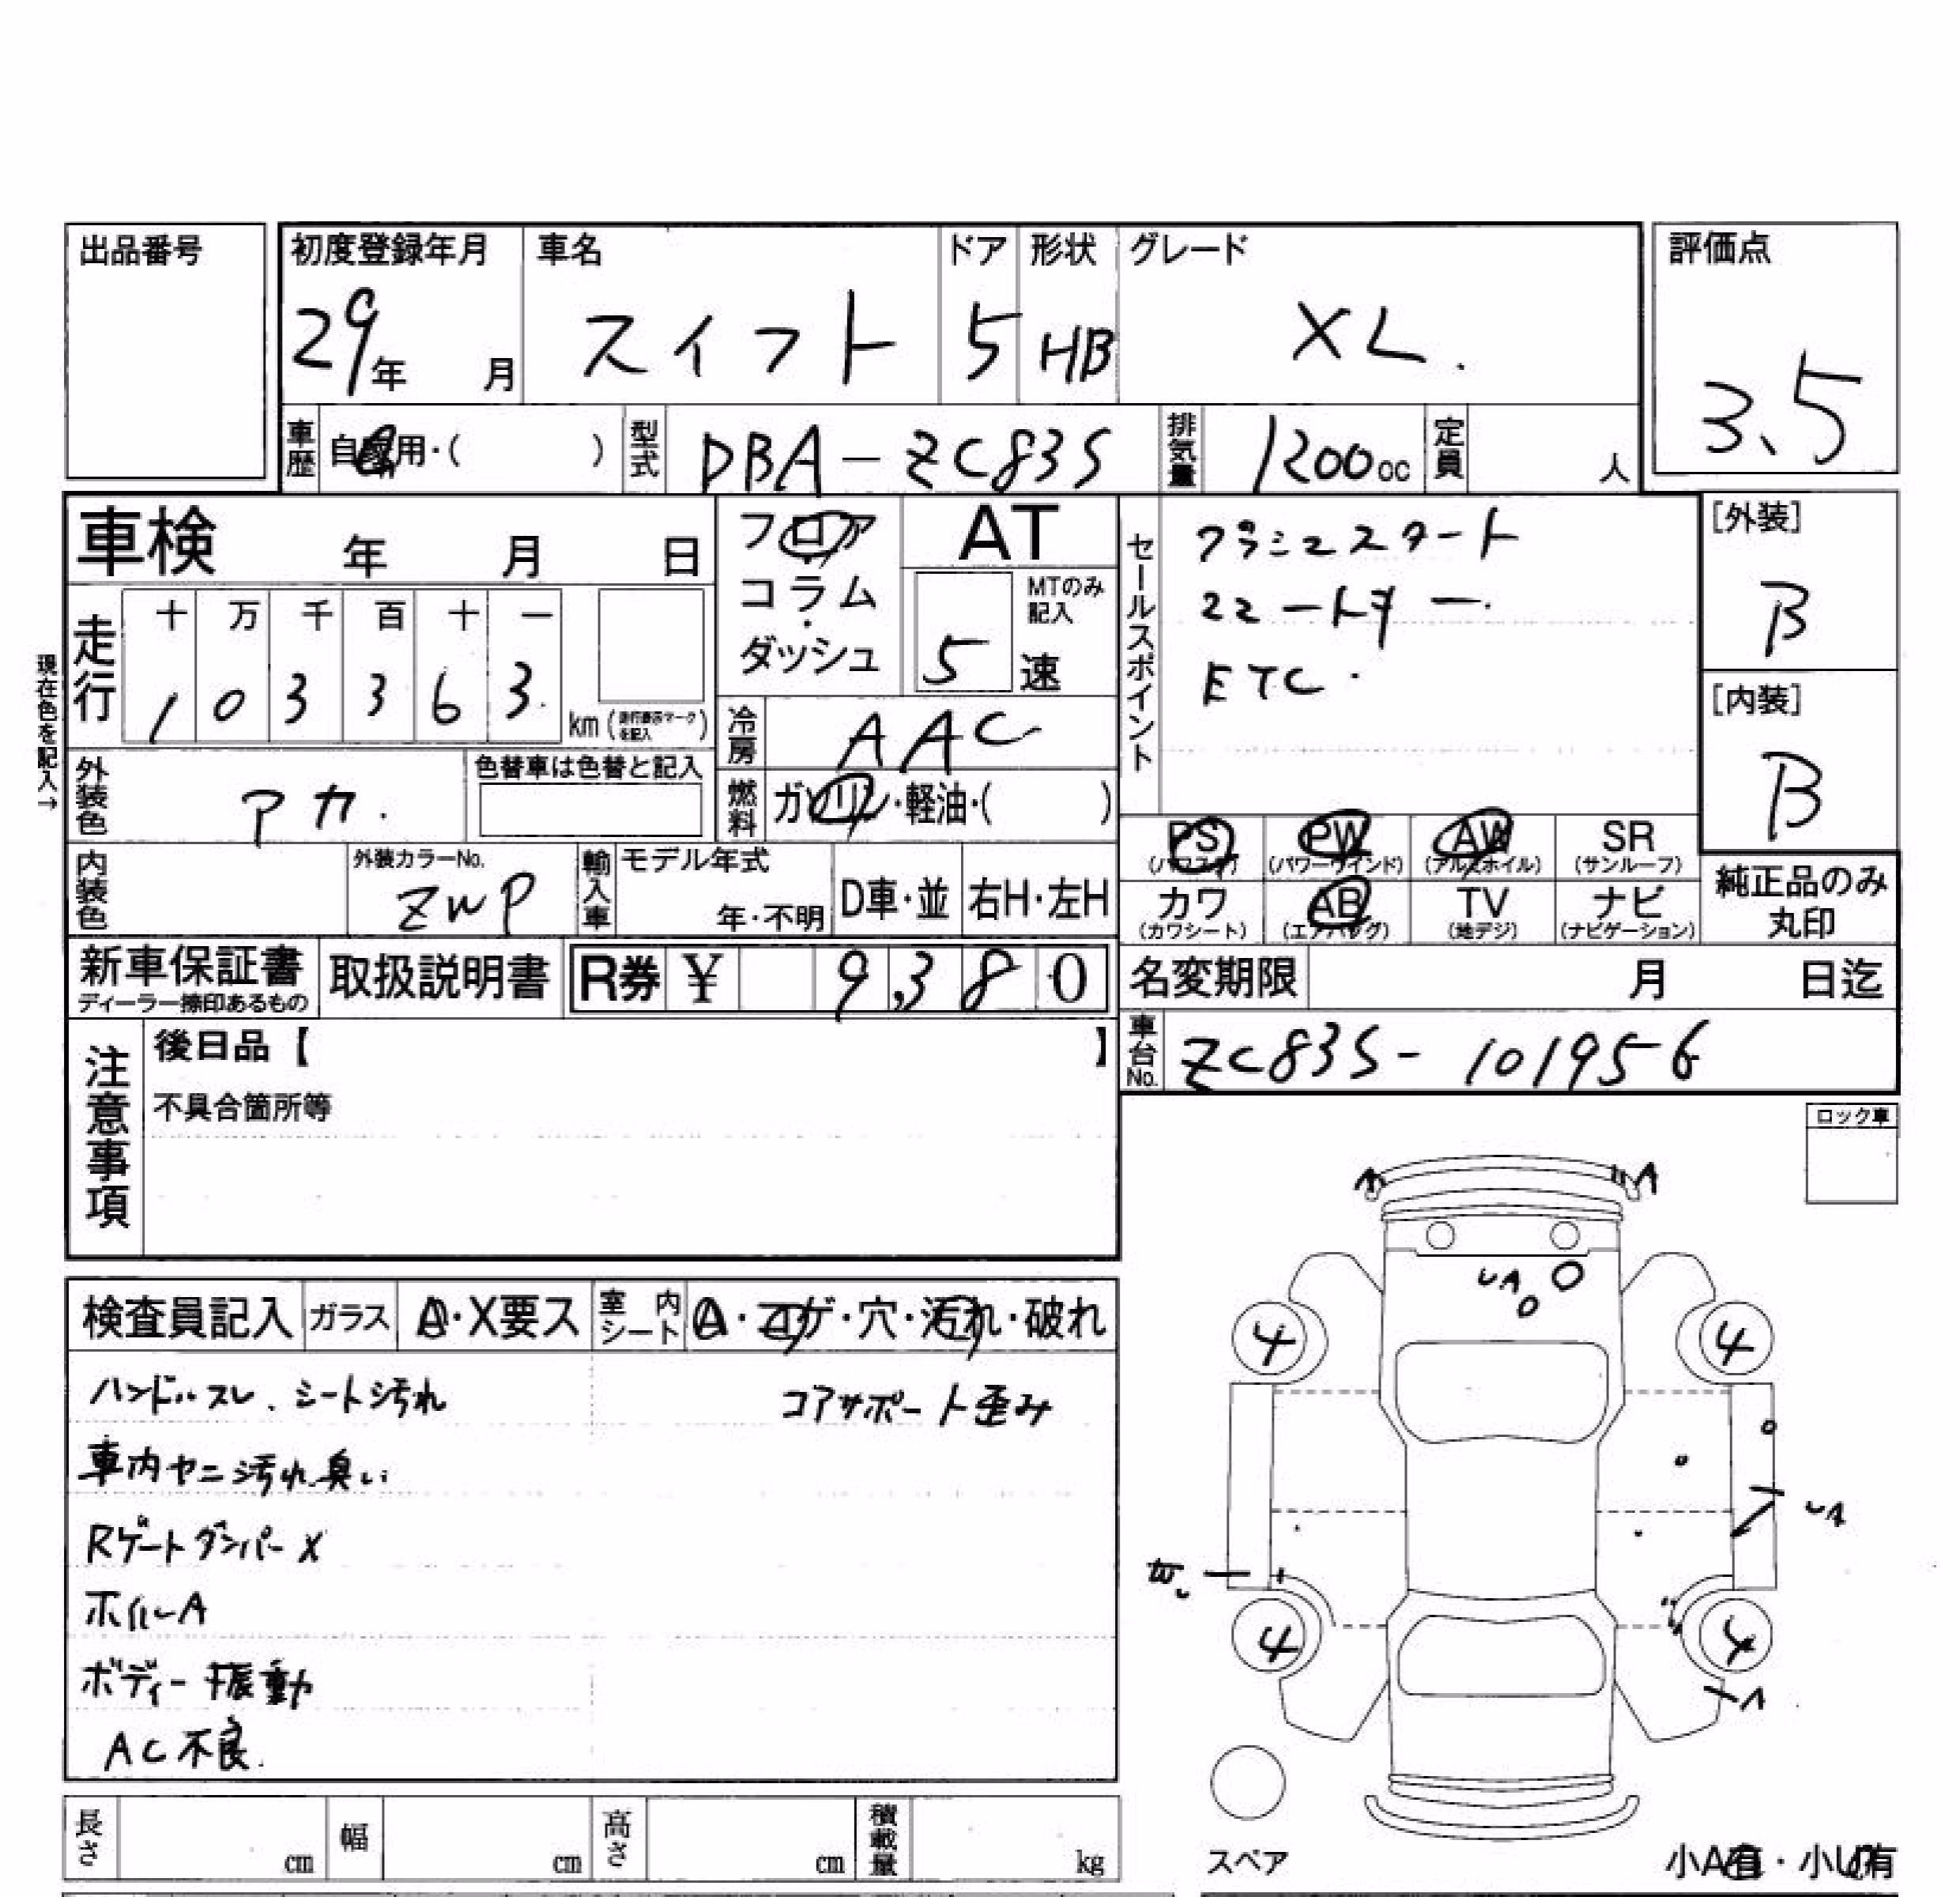 出品番号
初度登録年月 車名 ドア 形状 グレード 評価点
29年 月 スイフト 5 HB XL. 3.5
車歴 自家用・( ) 型式 DBA-ZC83S 排気量 1200cc 定員 人
車検 年 月 日
フロア・コラム・ダッシュ
AT
5速 MTのみ記入
セールスポイント
プラシュスタート
スマートキー.
ETC.
[外装]
B
[内装]
B
現在色を記入→
走行 十 万 千 百 十 一
1 0 3 3 6 3. km (走行表示マークを記入)
冷房 AAC
外装色 アカ. 色替車は色替と記入
燃料 ガソリン・軽油・( )
PS (パワステ) PW (パワーウインド) AW (アルミホイル) SR (サンルーフ)
カワ (カワシート) AB (エアバッグ) TV (地デジ) ナビ (ナビゲーション)
純正品のみ
丸印
内装色 外装カラーNo. ZWP 輸入車 モデル年式 年・不明 D車・並 右H・左H
新車保証書 ディーラー捺印あるもの 取扱説明書 R券 ¥ 9,380
名変期限 月 日迄
車台No. ZC83S-101956
注意事項
後日品【 】
不具合箇所等
ロック車
検査員記入 ガラス A・X要ス 室内シート A・コゲ・穴・汚れ・破れ
ハンドルスレ、シート汚れ コアサポート歪み
車内ヤニ汚れ、臭い
Rゲートダンパー×
ホイルA
ボディー振動
AC不良.
A A
UA
4 4
UA
W
4 4
A
スペア 小A有・小U有
長さ cm 幅 cm 高さ cm 積載量 kg